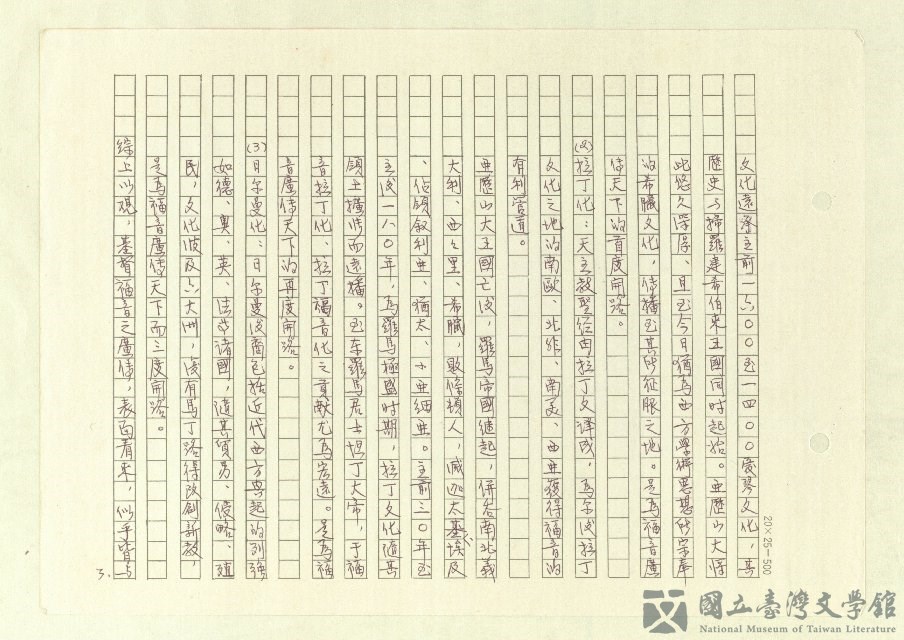 文化遠祭主前一六00至一四00愛琴文化,其
歷史與掃羅建希伯來王國同時起始。亞歷山大得
此悠久深厚、且至今日猶為西方學術思想所宗奉
的希臘文化,傳播至其所征服之地。是為福音廣
傳天下的首度開路。
(2)拉丁化:天主教聖經由拉丁文譯成,為爾後拉丁
文化之地的南歐、北非、南美、西亞獲得福音的
有利管道。
亞歷山大王國亡後,羅馬帝國繼起,併吞南北義
大利、西西里、希臘,敗條頓人,滅迦太基埃及
、佔領敘利亞、猶太、小亞細亞。主前三0年至
主後一八0年,為羅馬極盛時期,拉丁文化隨其
領土擴張而遠播。至東羅馬君士坦丁大帝,于福
音拉丁化、拉丁福音化之貢獻尤為宏遠。是為福
音廣傳天下的再度開路。
(3)日爾曼化:日爾曼後裔包括近代西方興起的列強
如德、奧、英、法等諸國,隨其貿易、侵略、殖
民,文化波及六大洲,復有馬丁路得改創新教,
是為福音廣傳天下而三度開路。
綜上以觀,基督福音之廣傳,表面看來,似乎皆與
3.
20×25=500
國立臺灣文學館
National Museum of Taiwan Literature